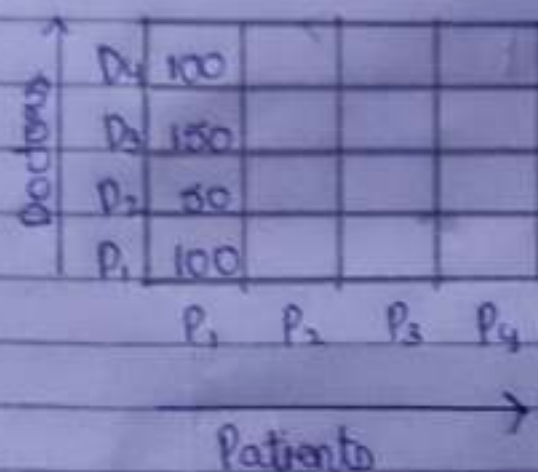 Doctors
D4 100
D3 150
D2 50
D1 100
P1 P2 P3 P4
Patients